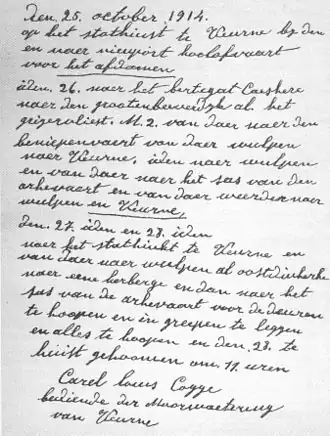 den 25. october 1914.
op het stathuist te Veurne bij den
en naer nieuport koolofvaart
voor het afdamen
iden. 26. naer het bertegat Caeskere
naer den grooten beverdijk al het
geizervliest. M. 2. van daer naer den
veniepenvaert van daer wulpen
naer Veurne, iden naer wulpen
en van daer naer het sas van den
arkevaert en van daer weerder naer
wulpen en Veurne,
den. 27. iden en 28. iden
naer het stathuist te Veurne en
van daer naer wulpen al oostduikerke
naer eene herberge en dan naer het
sas van de arkevaort voor de deuren
te hoopen en in greepen te leggen
en alles te hoopen en den. 28. te
huist gekoomen om. 11. uren
Carel louis Cogge
bediende der Moorwaetering
van Veurne